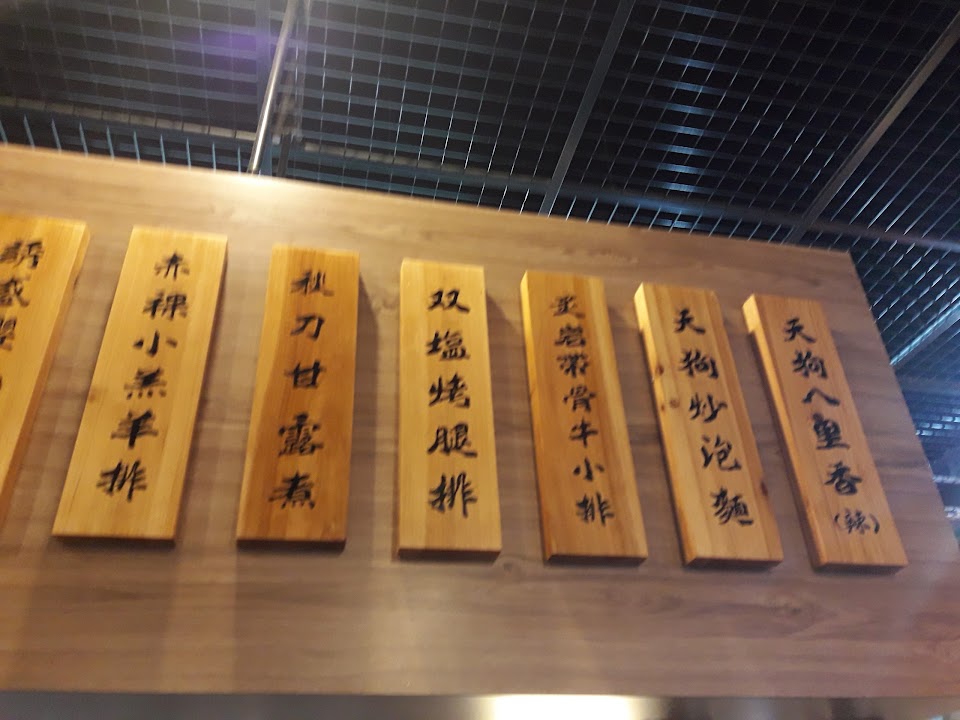 天狗八里香(辣)
天狗炒泡麵
炙岩帶骨牛小排
双塩烤腿排
秋刀甘露煮
赤裸小羔羊排